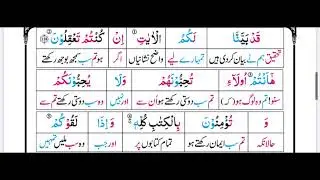 قَدْ بَيَّنَّا لَكُمُ الْاٰيٰتِ اِنْ كُنْتُمْ تَعْقِلُوْنَ
تحقیق ہم نے بیان کردی ہیں تمہارے لیے واضح نشانیاں اگر ہو تم سب سمجھ بوجھ رکھتے
هٰٓاَنْتُمْ اُولَآءِ تُحِبُّوْنَهُمْ وَلَا يُحِبُّوْنَكُمْ
سنو! تم وہ لوگ ہو (کہ) تم سب دوستی رکھتے ہو ان سے اور نہیں وہ سب دوستی رکھتے تم سے
وَ تُؤْمِنُوْنَ بِالْكِتٰبِ كُلِّهٖ وَاِذَا لَقُوْكُمْ
حالانکہ تم سب ایمان رکھتے ہو تمام کتابوں پر اور جب وہ سب ملیں تمہیں